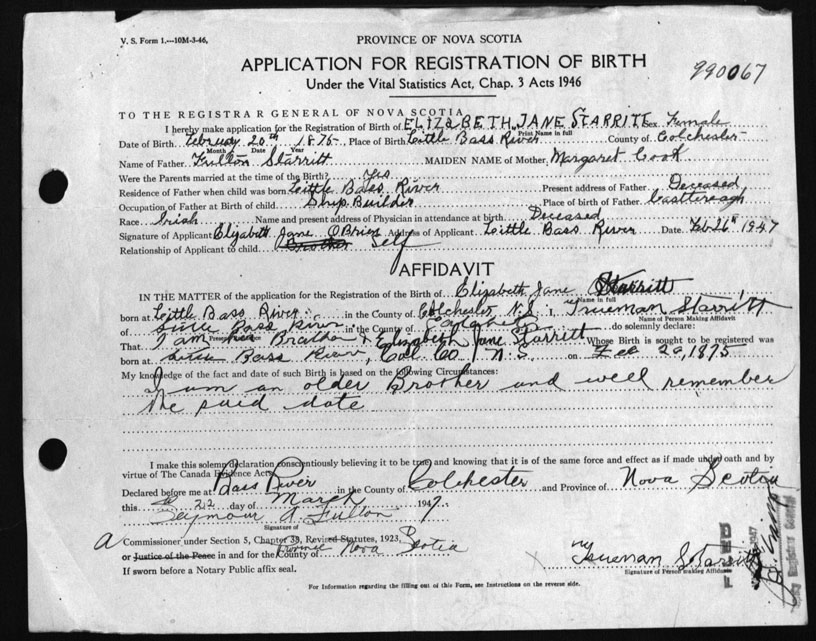 V. S. Form 1.—10M-3-46,
PROVINCE OF NOVA SCOTIA
APPLICATION FOR REGISTRATION OF BIRTH
Under the Vital Statistics Act, Chap. 3 Acts 1946
990067
TO THE REGISTRAR GENERAL OF NOVA SCOTIA
I hereby make application for the Registration of Birth of ELIZABETH JANE STARRITT Sex Female
Print Name in full
Date of Birth February 20th 1875 Place of Birth Little Bass River County of Colchester
Month Date Year
Name of Father Fulton Starritt MAIDEN NAME of Mother Margaret Cook
Were the Parents married at the time of the Birth? Yes
Residence of Father when child was born Little Bass River Present address of Father Deceased
Occupation of Father at Birth of child Ship Builder Place of birth of Father
Race Irish Name and present address of Physician in attendance at birth Deceased
Signature of Applicant Elizabeth Jane O'Brien Address of Applicant Little Bass River Date Feb 26th 1947
Relationship of Applicant to child Brother Self
AFFIDAVIT
IN THE MATTER of the application for the Registration of the Birth of Elizabeth Jane Starritt
Name in full
born at Little Bass River in the County of Colchester N.S. I, Trueman Starritt
Name of Person Making Affidavit
of Little Bass River in the County of Colchester do solemnly declare:
That I am Brother of Elizabeth Jane Starritt Whose Birth is sought to be registered was
born at Little Bass River, Col. Co. N.S on Feb 20, 1875
My knowledge of the fact and date of such Birth is based on the following Circumstances:
I am an older Brother and well remember
the said date
I make this solemn declaration conscientiously believing it to be true and knowing that it is of the same force and effect as if made under oath and by
virtue of The Canada Evidence Act.
Declared before me at Bass River in the County of Colchester and Province of Nova Scotia
this 22 day of March 1947.
Seymour A. Fulton
Signature of
A Commissioner under Section 5, Chapter 38, Revised Statutes, 1923,
or Justice of the Peace in and for the County of Province Nova Scotia
If sworn before a Notary Public affix seal.
x Trueman Starritt
Signature of Person making Affidavit
FILED
For Information regarding the filling out of this Form, see Instructions on the reverse side.